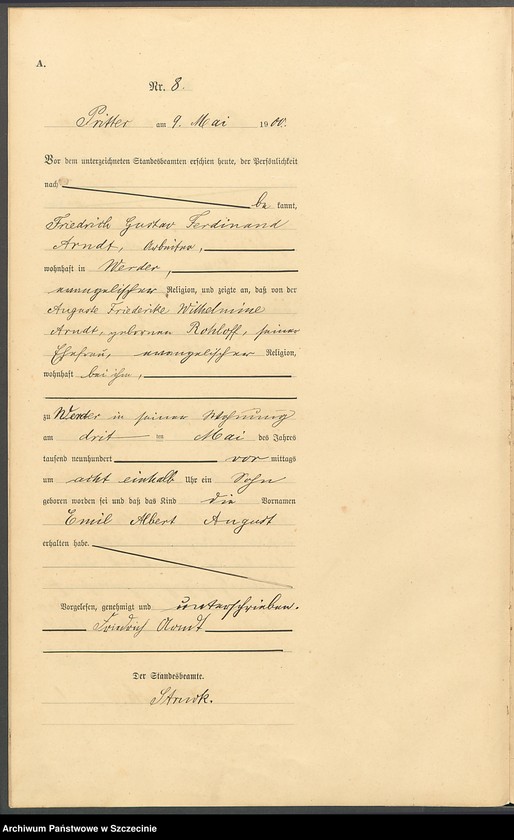 A.
Nr. 8.
Pritter am 9. Mai 1900.
Vor dem unterzeichneten Standesbeamten erschien heute, der Persönlichkeit
nach
be kannt,
Friedrich Gustav Ferdinand
Arndt, Arbeiter,
wohnhaft in Werder,
evangelischer Religion, und zeigte an, daß von der
Auguste Friederike Wilhelmine
Arndt, geborenen Rohloff, seiner
Ehefrau, evangelischer Religion,
wohnhaft bei ihm,
zu Werder in seiner Wohnung
am drit ten Mai des Jahres
tausend neunhundert vor mittags
um acht einhalb Uhr ein Sohn
geboren worden sei und daß das Kind die Vornamen
Emil Albert August
erhalten habe.
Vorgelesen, genehmigt und unterschrieben.
Friedrich Arndt
Der Standesbeamte.
Archiwum Państwowe w Szczecinie